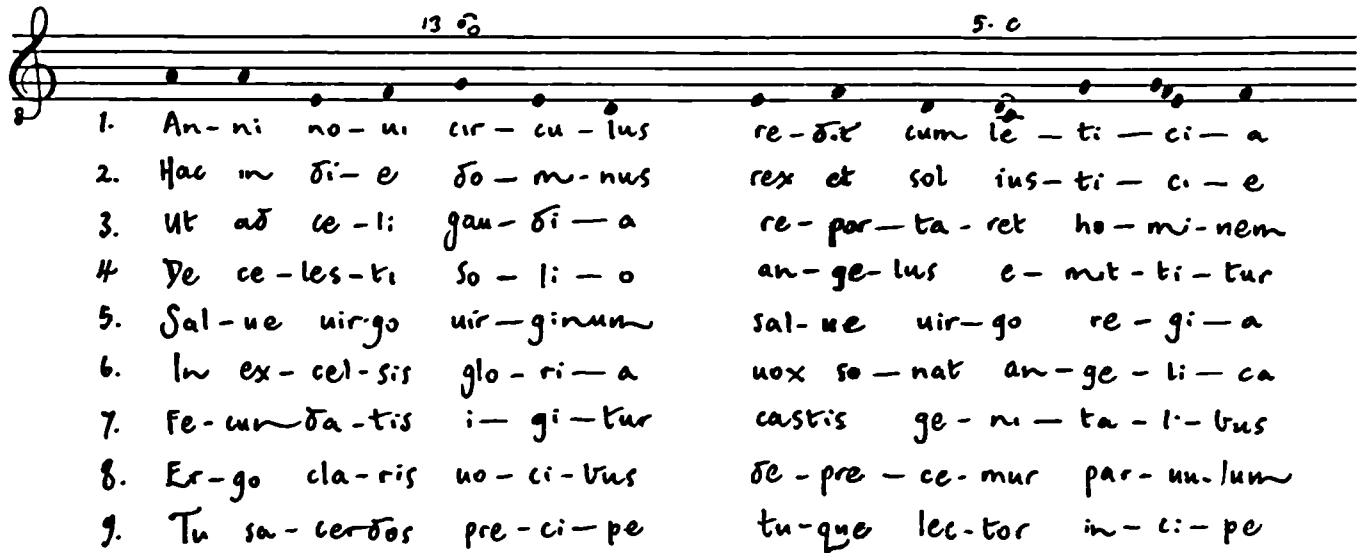 13 5. c
8
1. An-ni no-ui cir-cu-lus re-dit cum le-ti-ci-a
2. Hac in di-e do-mi-nus rex et sol ius-ti-ci-e
3. Ut ad ce-li gau-di-a re-por-ta-ret ho-mi-nem
4 De ce-les-ti so-li-o an-ge-lus e-mit-ti-tur
5. Sal-ue uir-go uir-ginum sal-ue uir-go re-gi-a
6. In ex-cel-sis glo-ri-a uox so-nat an-ge-li-ca
7. Fe-cun-da-tis i-gi-tur castis ge-ni-ta-li-bus
8. Er-go cla-ris uo-ci-bus de-pre-ce-mur par-uu-lum
9. Tu sa-cerdos pre-ci-pe tu-que lec-tor in-ci-pe